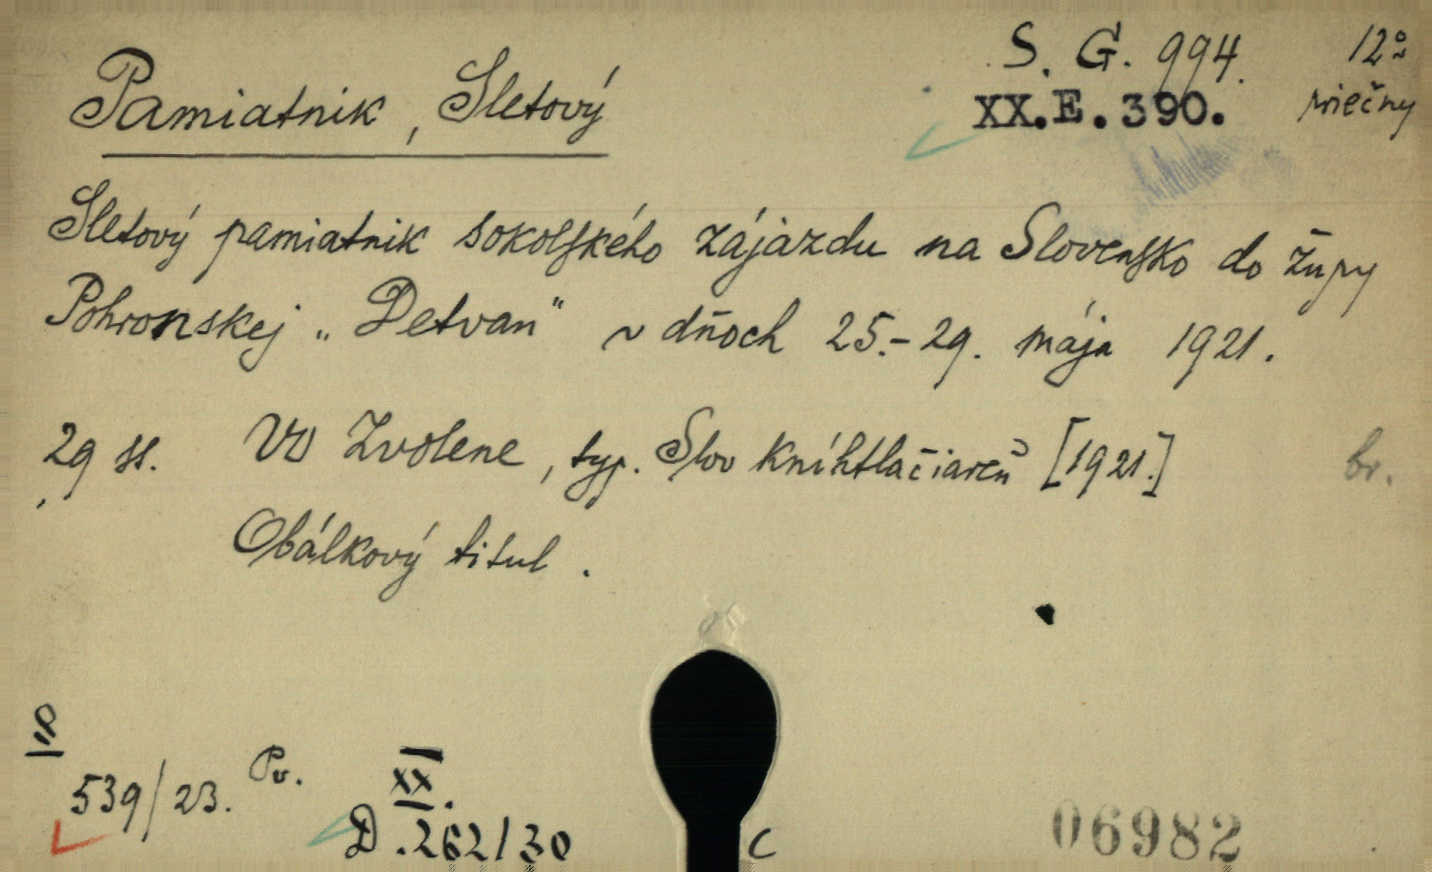 S. G. 994. 12º
Pamiatnik, Sletový
XX.E.390. priečny
Sletový pamiatnik sokolského zájazdu na Slovensko do župy
Pohronskej „Detvan" v dňoch 25.-29. mája 1921.
29 ss. Vo Zvolene, typ. Slov kníhtlačiareň [1921.] br.
Obálkový titul.
539/23. Pv. XX.
D.262/30 C 06982